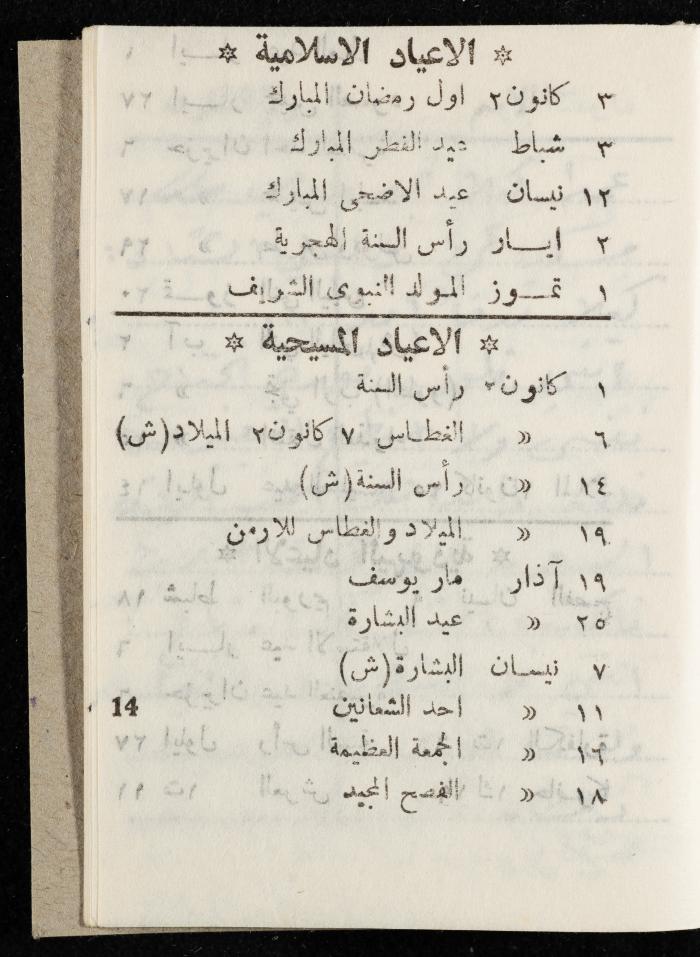 ✡ الاعياد الاسلامية ✡
٣ كانون٢ اول رمضان المبارك
٣ شباط عيد الفطر المبارك
١٢ نيسان عيد الاضحى المبارك
٢ ايــار رأس السنة الهجرية
١ تمــوز المولد النبوي الشريف
✡ الاعياد المسيحية ✡
١ كانون٢ رأس السنة
٦ » الغطاس ٧ كانون٢ الميلاد (ش)
١٤ » رأس السنة (ش)
١٩ » الميلاد والغطاس للارمن
١٩ آذار مار يوسف
٢٥ » عيد البشارة
٧ نيســان البشارة (ش)
١١ » احد الشعانين
١٦ » الجمعة العظيمة
١٨ » الفصح المجيد
14